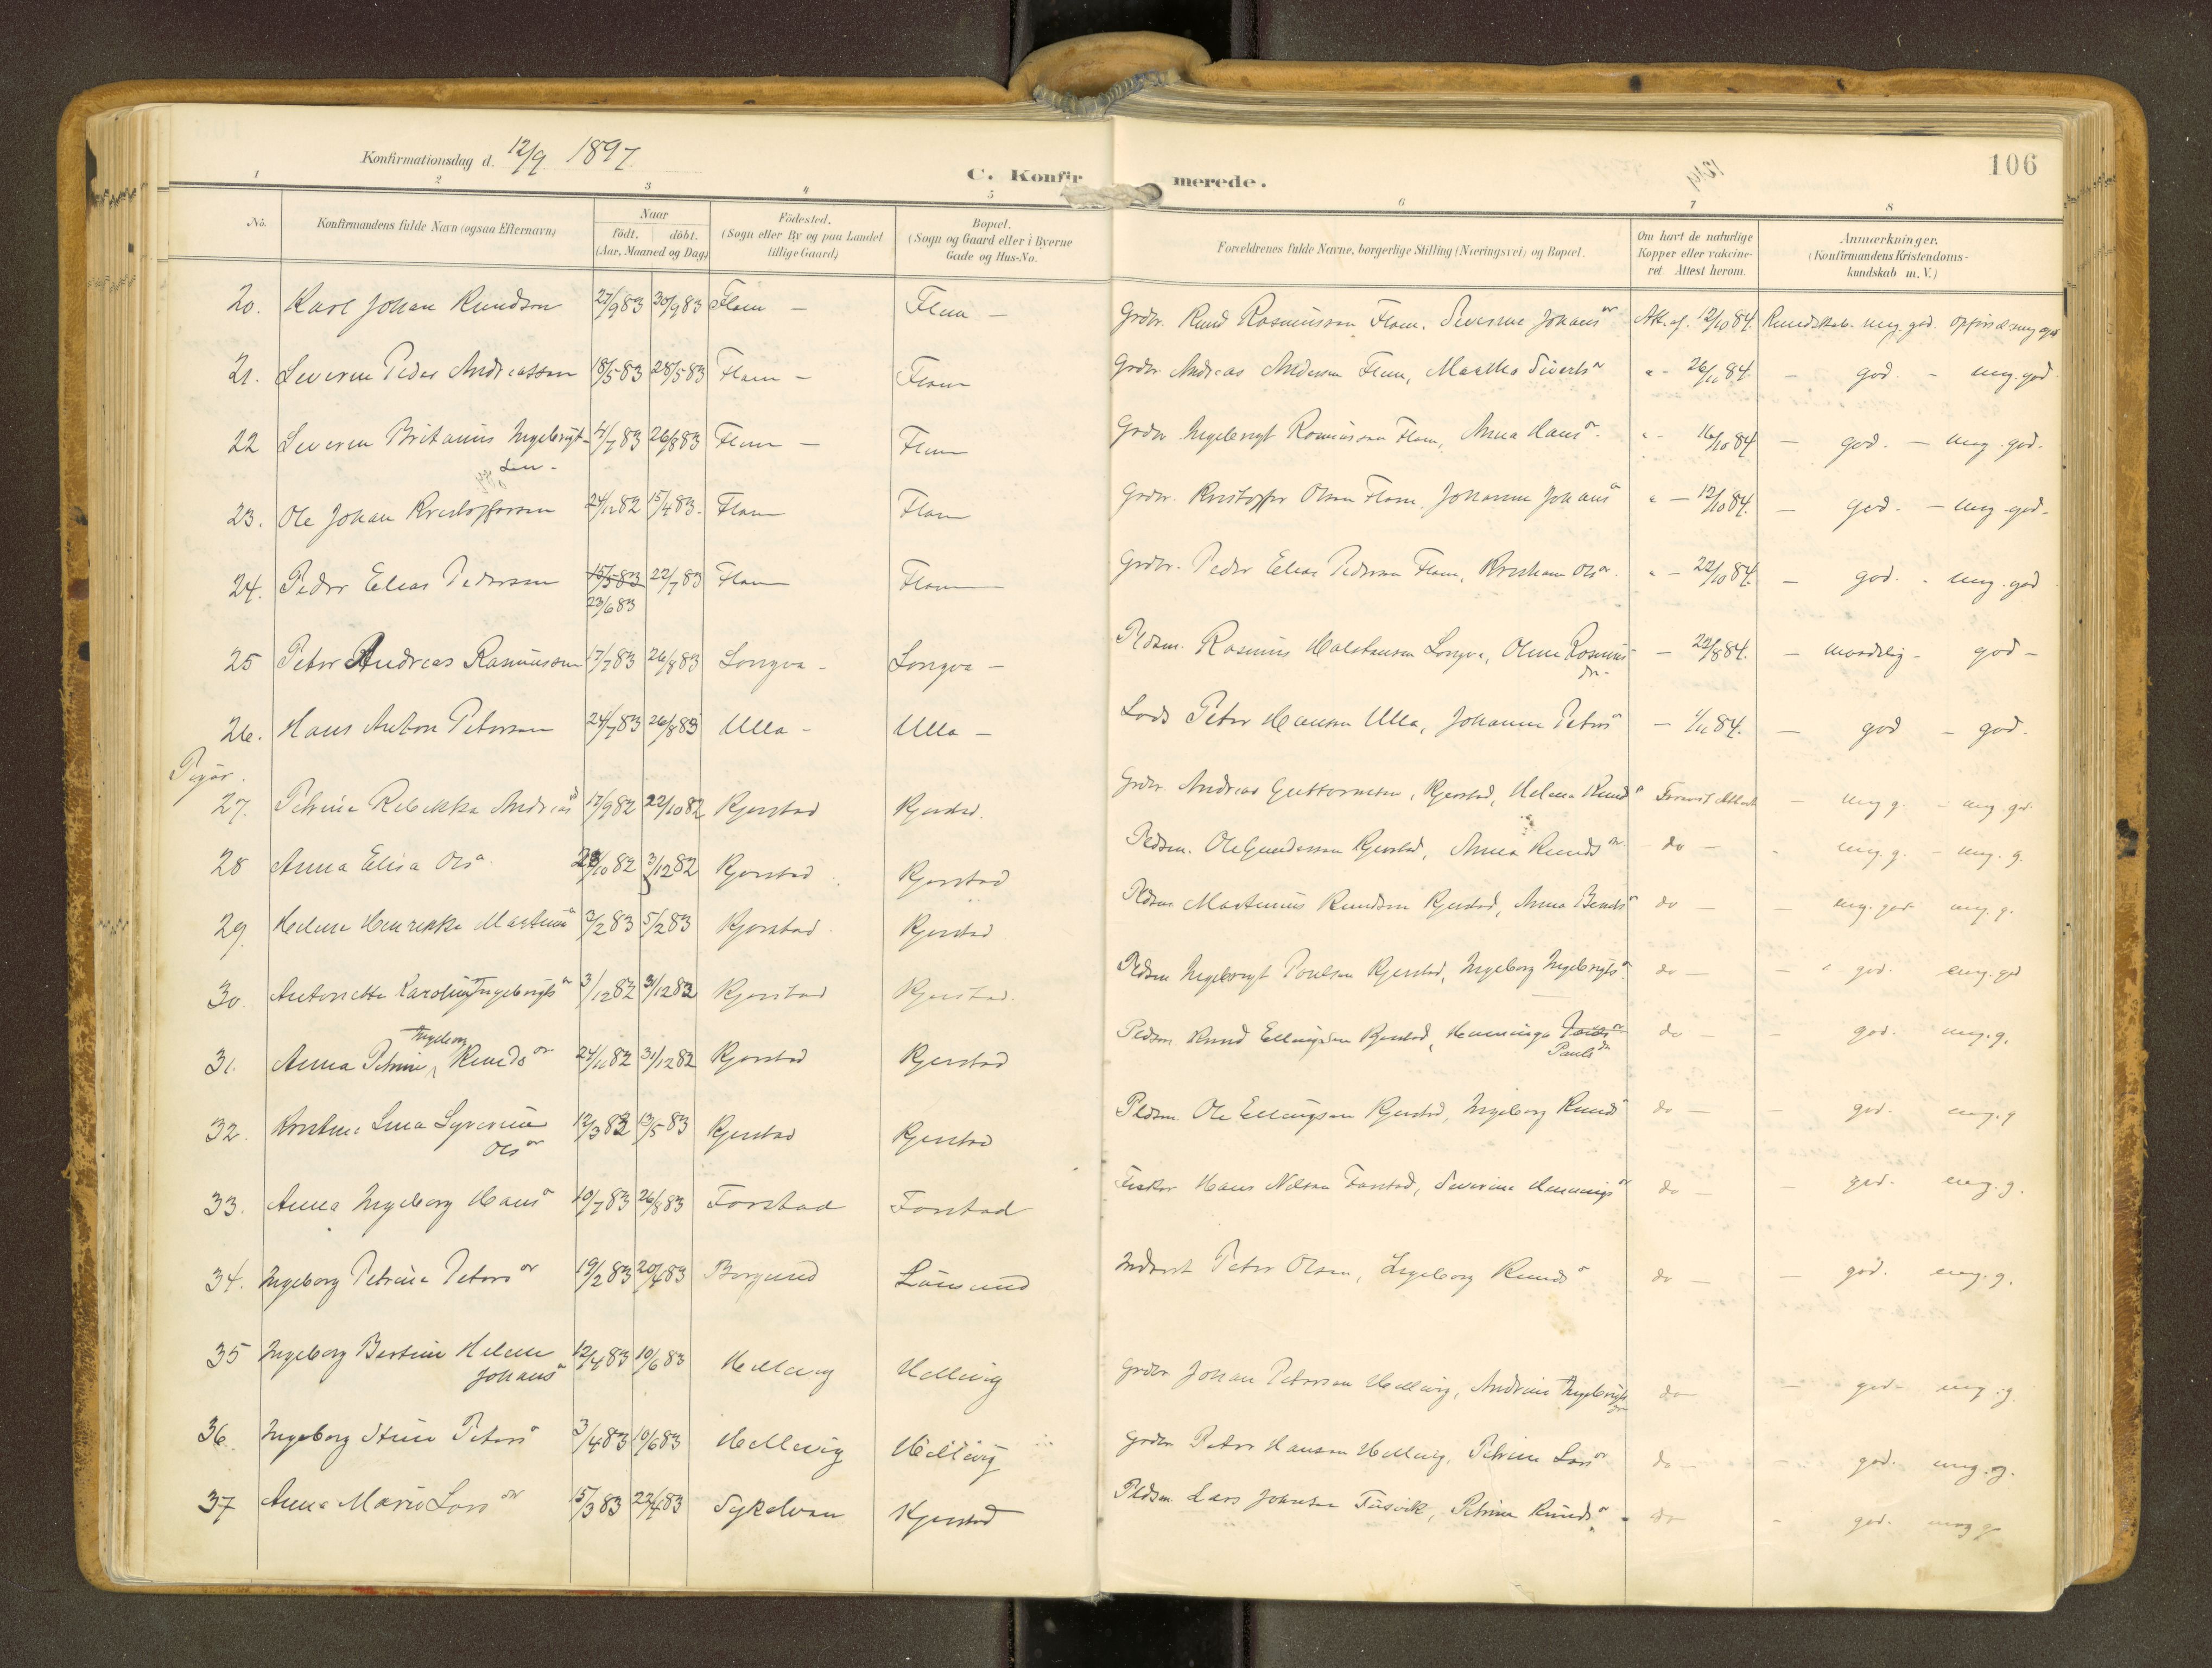 Konfirmationsdag d. 12/9 1897
C. Konfirmerede.
106
1 2 3 4 5 6 7 8
No. Konfirmandens fulde Navn (ogsaa Efternavn) Naar födt. döbt. (Aar, Maaned og Dag) Födested. (Sogn eller By og paa Landet tillige Gaard) Bopæl. (Sogn og Gaard eller i Byerne Gade og Hus-No. Forældrenes fulde Navne, borgerlige Stilling (Næringsvei) og Bopæl. Om havt de naturlige Kopper eller vakcineret. Attest herom. Anmærkninger. (Konfirmandens Kristendomskundskab m. V.)
20. Karl Johan Knudson 27/9 83 30/9 83 Flem – Flem – Grdbr. Knud Rasmusson Flem, Severine Johansdr Att. af. 12/10 84. Kundskab. meg. god. opförsel meg god
21. Severin Peder Andreassen 18/5 83 28/5 83 Flem – Flem Grdbr Andreas Andersen Flem, Martha Sivertsdr " - 26/11 84 – god. – meg. god
22 Severin Britanius Ingebrigtsen 4/7 83 26/8 83 Flem – Flem Grdbr Ingebrigt Rasmusson Flem, Anna Hansdr. " - 16/10 84 – god. – meg. god.
23. Ole Johan Kristoffersen 24/12 82 15/4 83. Flem Flem Grdbr. Kristoffer Olsen Flem, Johanne Johansdr " – 12/10 84. – god. – meg god.
24. Peder Elias Pedersen 15/5 83 23/6 83 22/7 83 Flem Flem Grdbr. Peder Elias Pedersen Flem, Olsdr. " – 22/10 84. – god. - meg. god
25 Peter Andreas Rasmusson 17/7 83 26/8 83 Longva – Longva – Pldsm. Rasmus Longva, Oline Rasmusdr – 22/8 84. – maadelig – god –
26. Hans Anton Petersen 24/7 83 26/8 83 Ulla – Ulla – Lods Peter Hansen Ulla, Johanne Petersdr – 1/11 84. – god – god.
Piger.
27. Petrine Rebekka Andreasd 17/9 82 22/10 82 Kjerstad Kjerstad. Grdbr Andreas Guttormsen, Kjerstad, Helene Knudsdr Forevist Attest – meg g. – meg. god.
28 Anna Elisa Olsdr. 29/10 82 3/12 82 Kjerstad Kjerstad Pldsm. Ole Gundersen Kjerstad, Anna Knudsdr. do – - meg. g. – meg. g.
29. Helene Henrikka Martinusdr 3/2 83 5/2 83 Kjerstad Kjerstad Pldsm Martinus Knudson Kjerstad, Anna do – – meg. god meg. g.
30. Antonette Karoline Ingebrigtsdr 3/12 82 31/12 82 Kjerstad Kjerstad. Pldsm Ingebrigt Poulsen Kjerstad, Ingeborg Ingebrigtsdr do – – " god. meg. god
31. Anna Petrine Ingeborg Knudsdr 24/11 82 31/12 82 Kjerstad Kjerstad Pldsm Knud Ellingsen Kjerstad, Paulsdr do – – god. meg. g.
32. Lina Syverine Olsdr 12/3 83 13/5 83 Kjerstad Kjerstad Pldsm. Ole Ellingsen Kjerstad, Ingeborg Knudsdr do – – god. meg. g
33. Anna Ingeborg Hansdr 10/7 83 26/8 83 Forstad Forstad Fisker Hans Nilsen Forstad, Severine Henningsdr do – – god. meg. g.
34. Ingeborg Petrine Petersdr 19/2 83 20/4 83 Borgund Inderst Peter Olsen, Ingeborg Knudsdr do – – god. meg. g.
35 Ingeborg Bertine Helene Johansdr 12/4 83 10/6 83 Hellevig Hellevig Grdbr Johan Petersen Hellevig, Andrine Ingebrigtsdr do – god – meg. g.
36. Ingeborg Stine Petersdr 3/4 83 10/6 83 Hellevig Hellevig Grdbr Peter Hansen Hellevig, Petrine Larsdr do – – god. meg. g.
37 Anna Marie Larsdr 15/3 83 22/4 83 Kjerstad Pldsm. Lars Johnsen, Petrine Knudsdr. do – - god. meg g